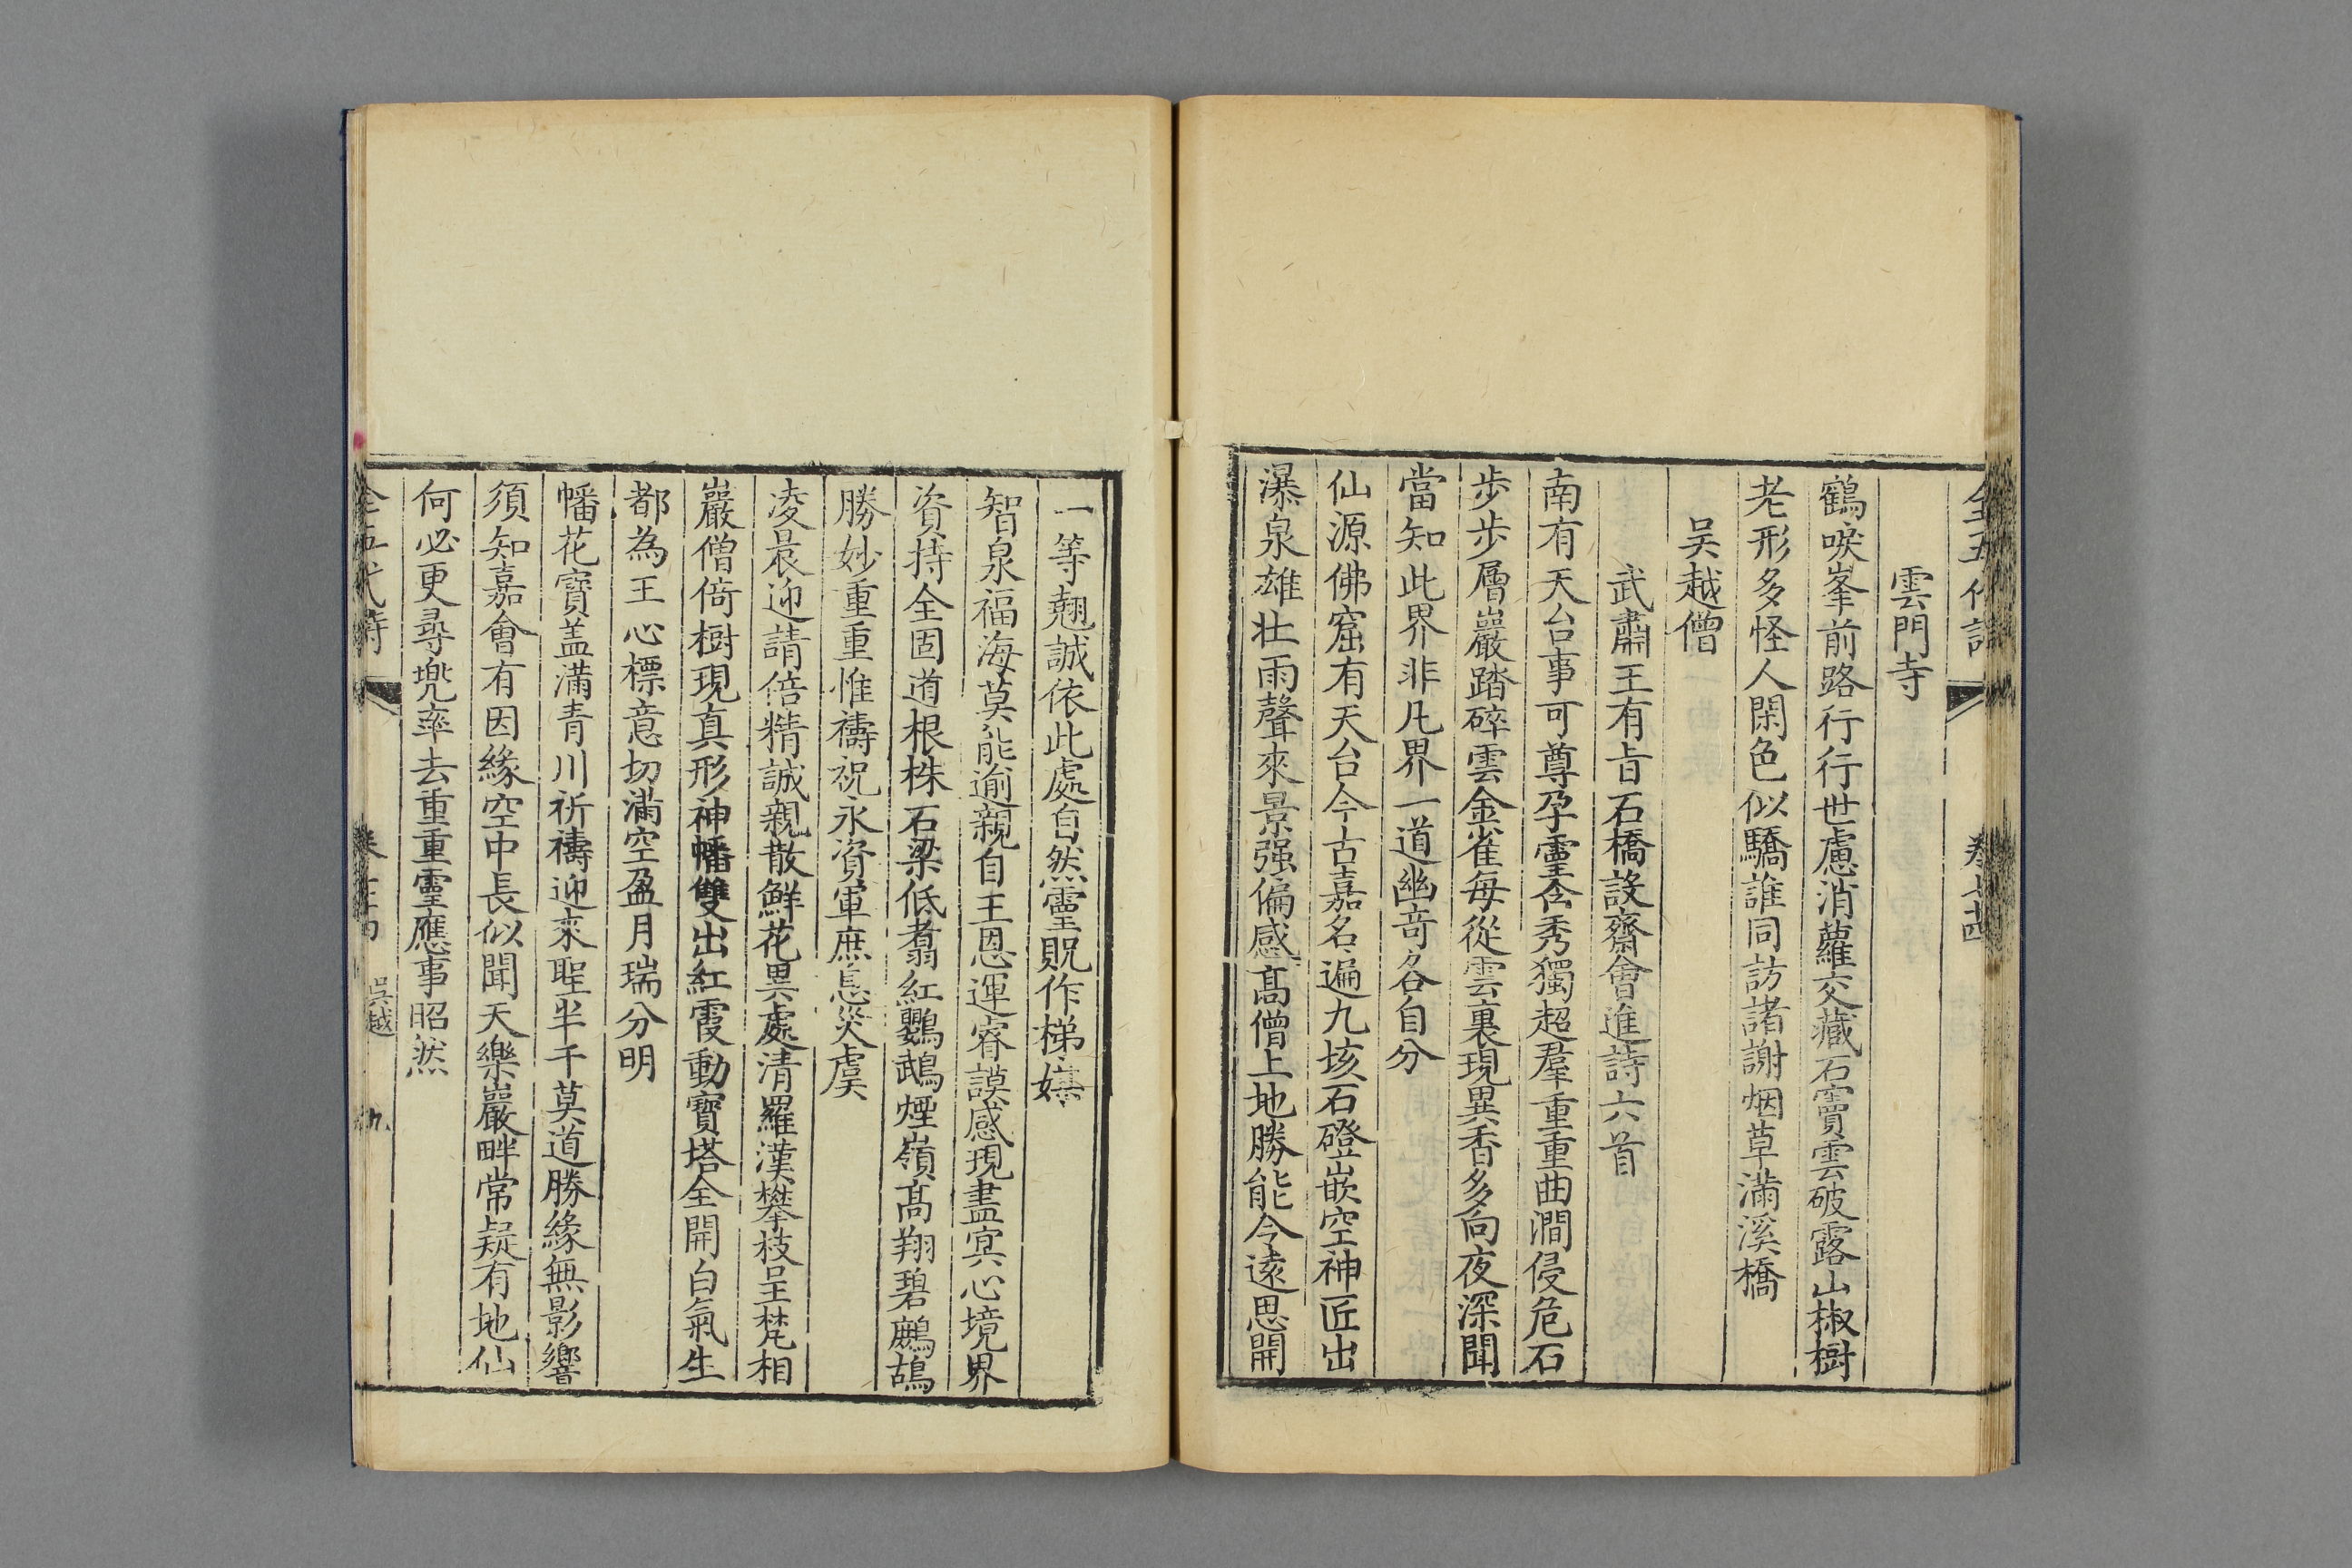 全五代詩 卷七十四
雲門寺
鶴唳峯前路行行世慮消蘿交藏石竇雲破露山椒樹
老形多怪人閑色似驕誰同訪諸謝烟草滿溪橋
吴越僧
武肅王有㫖石橋設齋會進詩六首
南有天台事可尊孕靈含秀獨超羣重重曲澗侵危石
步步層巖踏碎雲金雀每從雲裏現異香多向夜深聞
當知此界非凡界一道幽竒各自分
仙源佛窟有天台今古嘉名遍九垓石磴嵌空神匠出
瀑泉雄壯雨聲來景强偏感髙僧上地勝能令遠思開
一等翹誠依此處自然靈貺作梯媒
智泉福海莫能逾親自王恩運睿謨感現盡冥心境界
資持全固道根株石梁低翥紅鸚鵡煙嶺髙翔碧鷓鴣
勝妙重重惟禱祝永資軍庶息災虞
凌晨迎請倍精誠親散鮮花異處清羅漢攀枝呈梵相
巖僧倚樹現真形神幡雙出紅霞動寶塔全開白氣生
都為王心標意切滿空盈月瑞分明
幡花寶盖滿青川祈禱迎來聖半千莫道勝緣無影響
須知嘉會有因緣空中長似聞天樂巖畔常疑有地仙
何必更尋兜率去重重靈應事昭然
全五代詩 卷七十四 吴越 九